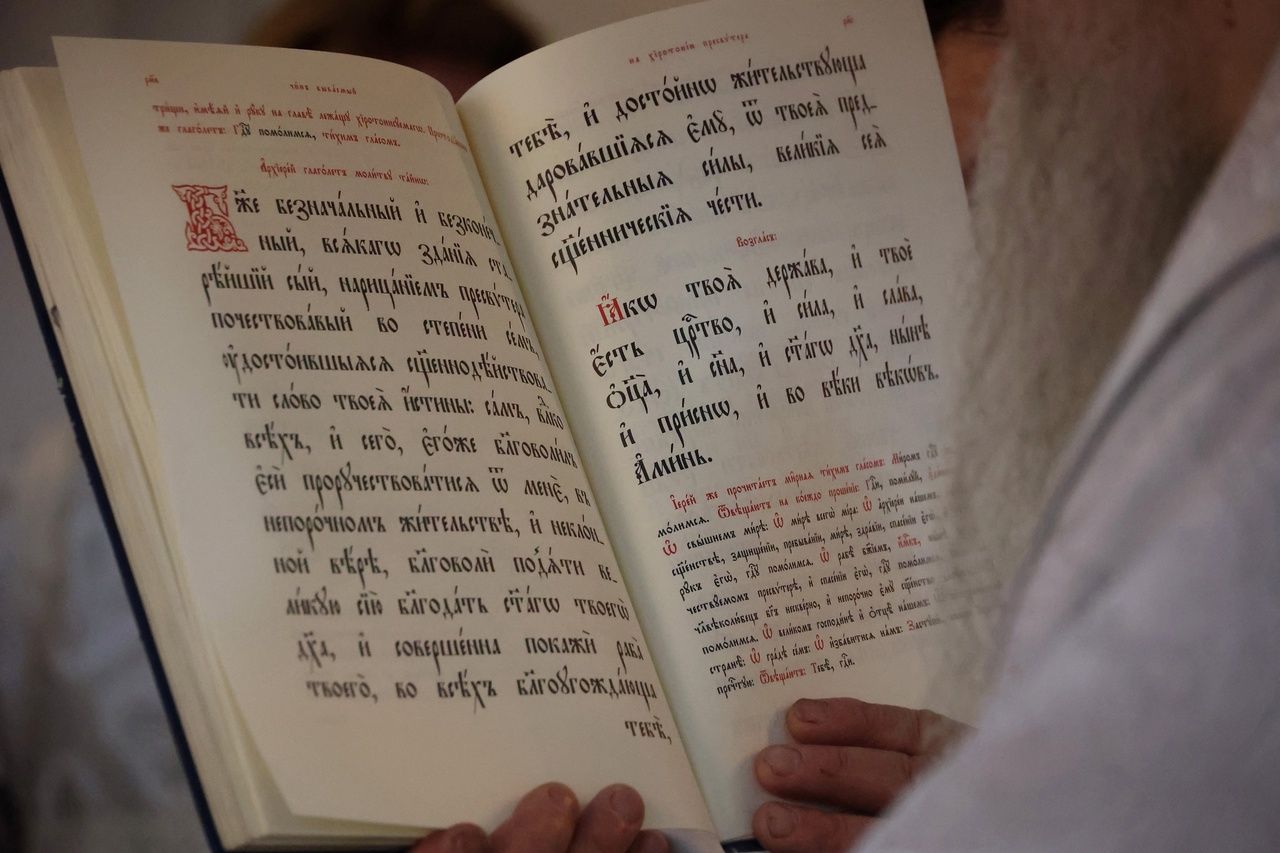 рп҃а
чи́нъ быва́емый
три́щи, и҆мѣ́ѧй и҆ рꙋ́кꙋ на главѣ̀ лежа́щꙋ хїротонисꙋ́емагѡ.
же глаго́летъ: Гдⷭ҇ꙋ помо́лимсѧ, ти́химъ гла́сомъ.
А҆рхїере́й глаго́летъ моли́твꙋ та́йнѡ:
Бж҃е безнача́льный и҆ безконе́ч_
ный, всѧ́кагѡ зда́нїѧ ста_
рѣ́йшїй сы́й, нарица́нїемъ пресвѵ́тера
почествова́вый во степе́ни се́мъ,
ᲂу҆досто́ившыѧсѧ сщ҃еннодѣ́йствова_
ти сло́во твоеѧ̀ и҆́стины: са́мъ, влⷣко
всѣ́хъ, и҆ сего̀, є҆го́же бл҃говоли́лъ
є҆сѝ прорꙋчествова́тисѧ ѿ менє̀, въ
непоро́чномъ жи́тельствѣ, и҆ неукло́н_
ной вѣ́рѣ, бл҃говолѝ подъѧ́ти ве_
ли́кꙋю сїю̀ бл҃года́ть ст҃а́гѡ твоегѡ̀
дх҃а, и҆ соверше́нна покажѝ раба̀
твоего̀, во всѣ́хъ бл҃гоꙋгожда́юща
тебѣ̀,
на хїротоні́и пресвѵ́тера
тебѣ̀, и҆ досто́йнѡ жи́тельствꙋюща
дарова́вшїѧсѧ є҆мꙋ̀, ѿ твоеѧ̀ пред_
зна́тельныѧ си́лы, вели́кїѧ сеѧ̀
сщ҃е́нническїѧ че́сти.
Возгла́съ:
Ꙗ҆́кѡ твоѧ̀ держа́ва, и҆ твоѐ
є҆́сть црⷭ҇тво, и҆ си́ла, и҆ сла́ва,
ѻ҆ц҃а̀, и҆ сн҃а, и҆ ст҃а́гѡ дх҃а, ны́нѣ
и҆ при́снѡ, и҆ во вѣ́ки вѣкѡ́въ.
А҆ми́нь.
І҆ере́й же прочита́етъ ми̑рнаѧ ти́химъ гла́сомъ: Ми́ромъ гдⷭ҇ꙋ
помо́лимсѧ. Ѿвѣща́ютъ на ко́еждо проше́нїе: Гдⷭ҇и, поми́лꙋй.
Ѡ҆ свы́шнемъ ми́рѣ: Ѡ҆ ми́рѣ всегѡ̀ мі́ра: Ѡ҆ а҆рхїере́и на́шемъ
сщ҃е́нствѣ, защище́нїи, пребыва́нїи, ми́рѣ, здра́вїи, спасе́нїи є҆гѡ̀
рꙋ́къ є҆гѡ̀, гдⷭ҇ꙋ помо́лимсѧ. Ѡ҆ рабѣ̀ бж҃їемъ, и҆́мⷬ҇къ,
чествꙋемомъ пресвѵ́терѣ, и҆ спасе́нїи є҆гѡ̀, гдⷭ҇ꙋ помо́лимсѧ
чл҃вѣколю́бецъ бг҃ъ нескве́рно, и҆ непоро́чно є҆мꙋ̀ сщ҃е́нство
помо́лимсѧ. Ѡ҆ вели́комъ господи́нѣ и҆ ѻ҆тцѣ̀ на́шемъ:
странѣ̀: Ѡ҆ гра́дѣ се́мъ: Ѡ҆ и҆зба́витисѧ на́мъ: Застꙋпѝ
прест҃ꙋ́ю: Ѿвѣща́ютъ: Тебѣ̀, гдⷭ҇и.